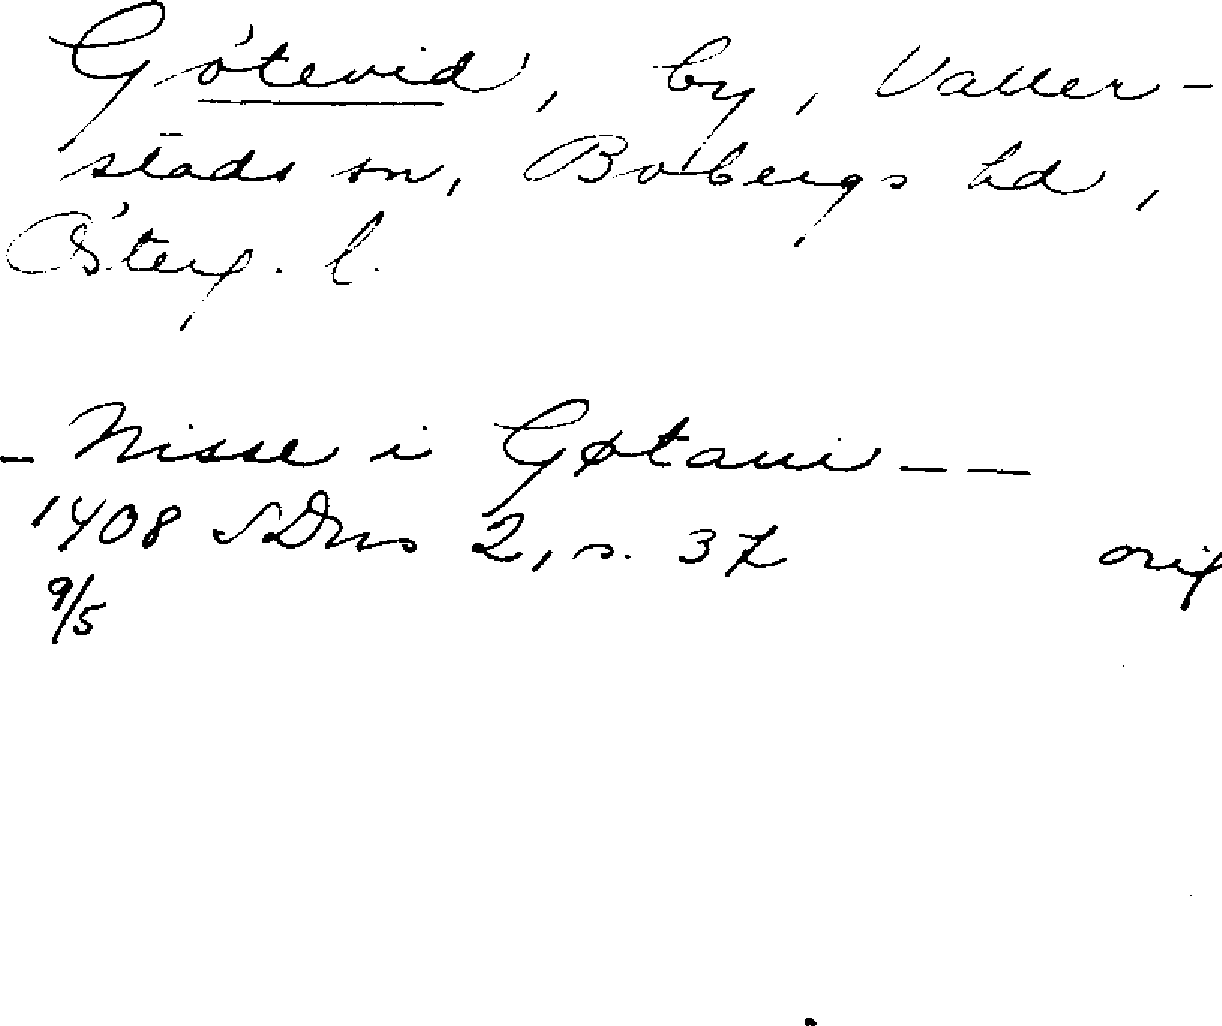 Götevid, by, Valler-
stads sn, Bobergs hd,
Österg. l.
- Nisse i Gøtaui - -
1408 SDns 2, s. 37 orig
9/5